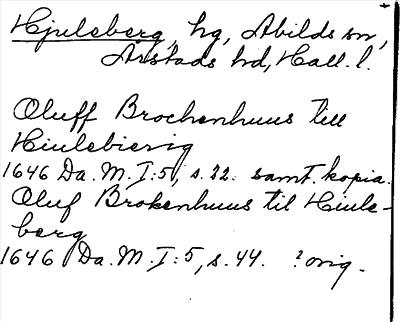 Hjuleberg, hg, Abilds sn,
Årstads hd, Hall. l.
Oluff Brochenhuus till
Hiulebierig
1646 Da. M. I:5, s. 22. samt. kopia.
Oluf Brokenhuus til Hiule-
berg
1646 Da. M. I:5, s. 44. ? orig.